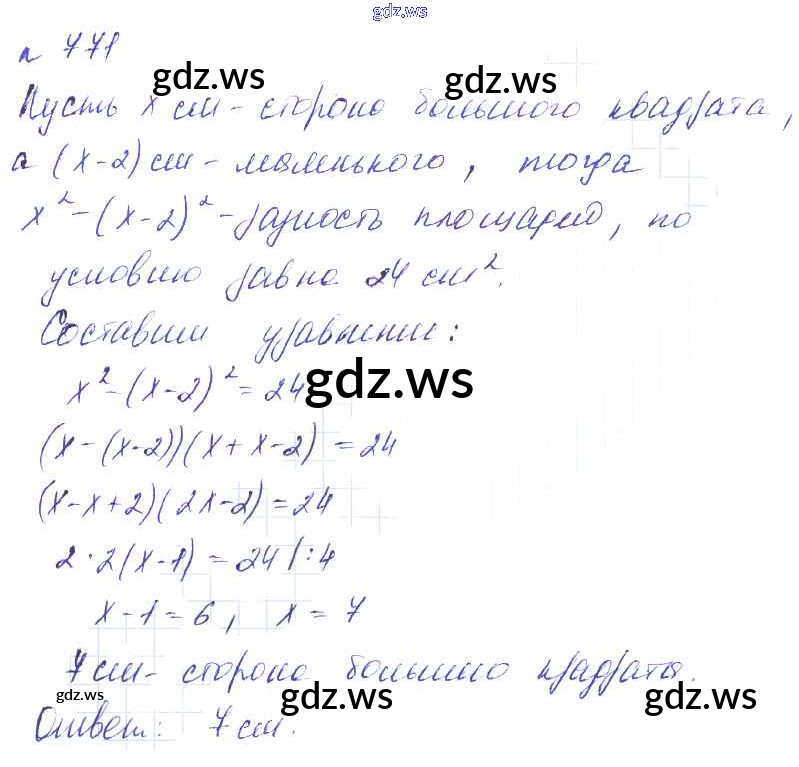 gdz.ws
№ 771
gdz.ws gdz.ws
Пусть x см - сторона большого квадрата,
а (x-2) см - маленького, тогда
x² - (x-2)² - разность площадей, по
условию равна 24 см².
Составим уравнение:
x² - (x-2)² = 24
gdz.ws
(x - (x-2))(x + x - 2) = 24
(x - x + 2)(2x - 2) = 24
2 · 2(x-1) = 24 | : 4
x - 1 = 6, x = 7
7 см - сторона большого квадрата.
gdz.ws gdz.ws gdz.ws gdz.ws
Ответ: 7 см.